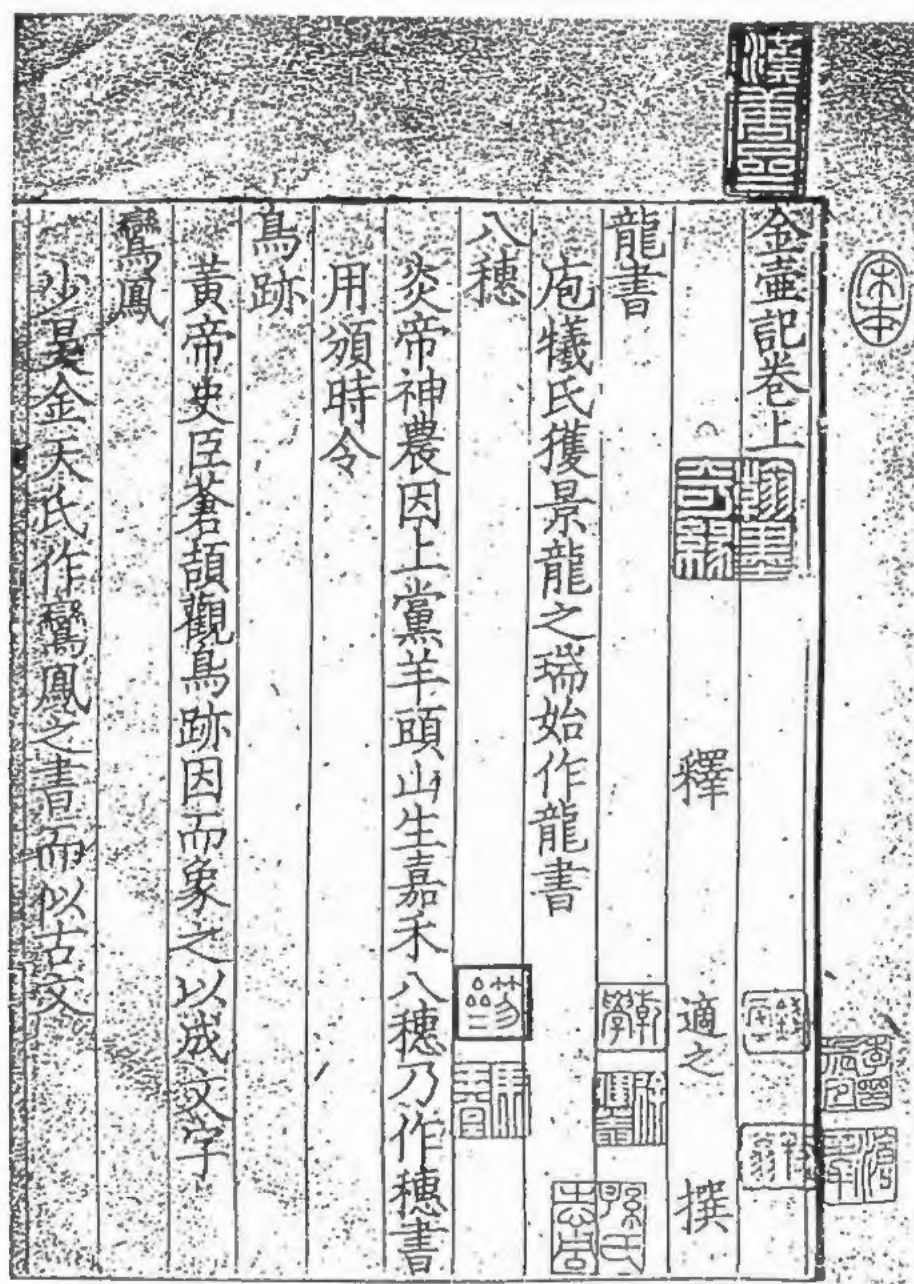 金壺記卷上
釋 適之 撰
龍書
庖犧氏獲景龍之瑞始作龍書
八穗
炎帝神農因上黨羊頭山生嘉禾八穗乃作穗書
用頒時令
鳥跡
黃帝史臣蒼頡觀鳥跡因而象之以成文字
鸞鳳
少昊金天氏作鸞鳳之書而以古文
宋本